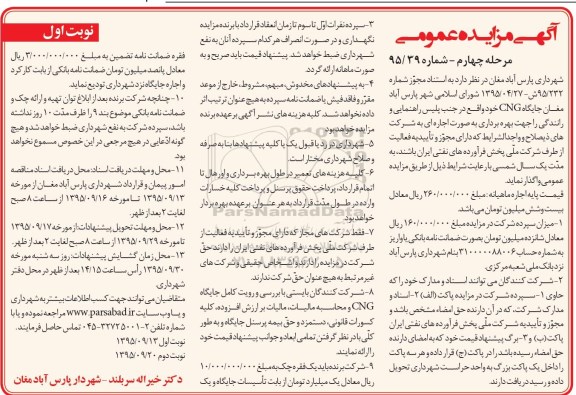 آگهی مزایده عمومی
مرحله چهارم - شماره ۹۵/۳۹
شهرداری پارس آباد مغان در نظر دارد به استناد مجوز شماره
۹۵/۲۳۲/ش-۱۳۹۵/۰۴/۲۷ شورای اسلامی شهر پارس آباد
مغان جایگاه CNG خود واقع در جنب پلیس راهنمایی و
رانندگی را جهت بهره برداری به صورت اجاره ای به شرکت
های ذیصلاح و واجد الشرایط که دارای مجوز و تأییدیه فعالیت
از طرف شرکت ملّی پخش فرآورده های نفتی ایران باشند، به
مدّت یک سال شمسی با رعایت شرایط ذیل از طریق مزایده
عمومی واگذار نماید.
قیمت پایه اجاره ماهیانه: مبلغ ۲۶۰/۰۰۰/۰۰۰ ریال معادل
بیست و شش میلیون تومان می باشد.
۱-میزان سپرده شرکت در مزایده مبلغ ۱۶۰/۰۰۰/۰۰۰ ریال
معادل شانزده میلیون تومان بصورت ضمانت نامه بانکی یا واریز
به شماره حساب ۳۱۰۰۰۰۰۸۸۰۰۶ بنام شهرداری پارس آباد
نزد بانک ملی شعبه مرکزی.
۲-شرکت کنندگان می توانند اسناد و مدارک خود را که
حاوی ۱-سپرده شرکت در مزایده پاکت (الف) ۲-اسناد و
مدارک شرکت، که در آن دارنده حق امضاء مشخص باشد و
مجوز و تأییدیه شرکت ملّی پخش فرآورده های نفتی ایران
پاکت (ب) و ۳-برگ پیشنهاد قیمت خود که به امضای دارنده
حق امضاء رسیده باشد را در پاکت (ج) قرار داده و هر سه پاکت
را داخل یک پاکت بزرگ به واحد حراست شهرداری تحویل
داده و رسید دریافت دارند.
۳-سپرده نفرات اوّل تا سوم تا زمان انعقاد قرارداد با برنده مزایده
نگهداری و در صورت انصراف هر کدام سپرده آنان به نفع
شهرداری ضبط خواهد شد. پیشنهاد قیمت باید صریح و به
صورت ماهانه ارائه گردد.
۴-به پیشنهادهای مخدوش، مبهم، مشروط، خارج از موعد
مقرّر و فاقد فیش یا ضمانت نامه سپرده به هیچ عنوان ترتیب اثر
داده نخواهد شد. کلیه هزینه های نشر آگهی بر عهده برنده
مزایده خواهد بود.
۵-شهرداری در رد یا قبول یک یا کلیه پیشنهادها بنا به صرفه
و صلاح شهرداری مختار است.
۶-کلیه هزینه های تعمیر در طول بهره برداری و اورهال تا
اتمام قرارداد، پرداخت حقوق پرسنل و پرداخت کلیه خسارات
وارده در طول مدّت قرارداد به هر عنوان بر عهده بهره بردار
خواهد بود.
۷-فقط شرکت های مجاز که دارای مجوّز و تأییدیه فعالیت از
طرف شرکت ملّی پخش فرآورده های نفتی ایران را دارند حقّ
شرکت در مزایده را دارند و اشخاص حقیقی و شرکت های
غیر مرتبط به هیچ عنوان حقّ شرکت ندارند.
۸-شرکت کنندگان بایستی با بررسی و رویت کامل جایگاه
CNG و محاسبه مالیات، مالیات بر ارزش افزوده، کلیه
کسورات قانونی، دستمزد و حقّ بیمه پرسنل جایگاه و به طور
کلّی با در نظر گرفتن تمامی ابعاد و جوانب پیشنهاد قیمت خود
را ارائه نمایند.
۹-شرکت برنده باید یک فقره چک به مبلغ ۱۰/۰۰۰/۰۰۰/۰۰۰
ریال معادل یک میلیارد تومان از بابت تأسیسات جایگاه و یک
نوبت اول
فقره ضمانت نامه تضمین به مبلغ ۳/۰۰۰/۰۰۰/۰۰۰ ریال
معادل پانصد میلیون تومان ضمانت نامه بانکی از بابت کارکرد
و اجاره جایگاه نزد شهرداری تودیع نماید.
۱۰-چنانچه شرکت برنده بعد از ابلاغ توان تهیه و ارائه چک و
ضمانت نامه بانکی موضوع بند ۹ را ظرف مدّت ۱۰ روز نداشته
باشد، سپرده شرکت به نفع شهرداری ضبط خواهد شد و هیچ
گونه ادّعایی در هیچ مرجعی در این خصوص مسموع نخواهد
بود.
۱۱-محل و مهلت دریافت اسناد: محل دریافت اسناد مناقصه
امور پیمان و قرارداد شهرداری پارس آباد مغان از مورخه
۱۳۹۵/۰۹/۱۳ تا مورخه ۱۳۹۵/۰۹/۱۶ از ساعت ۸ صبح
لغایت ۲ بعد از ظهر.
۱۲-محل و مهلت تحویل پیشنهادات: از مورخه ۱۳۹۵/۰۹/۱۷
تا مورخه ۱۳۹۵/۰۹/۲۹ از ساعت ۸ صبح لغایت ۲ بعد از ظهر.
۱۳-محل زمان گشایش پیشنهادات: روز سه شنبه مورخه
۱۳۹۵/۰۹/۳۰ رأس ساعت ۱۴/۱۵ بعد از ظهر در محل دفتر
شهرداری.
متقاضیان می توانند جهت کسب اطلاعات بیشتر به شهرداری
و یا وب سایت www.parsabad.ir مراجعه نموده و یا با
شماره تلفن ۲-۳۲۷۲۵۰۰۱-۰۴۵ تماس حاصل فرمایند.
نوبت اول ۱۳۹۵/۰۹/۱۳
نوبت دوم ۱۳۹۵/۰۹/۲۰
دکتر خیراله سربلند - شهردار پارس آباد مغان
ParsNamadData